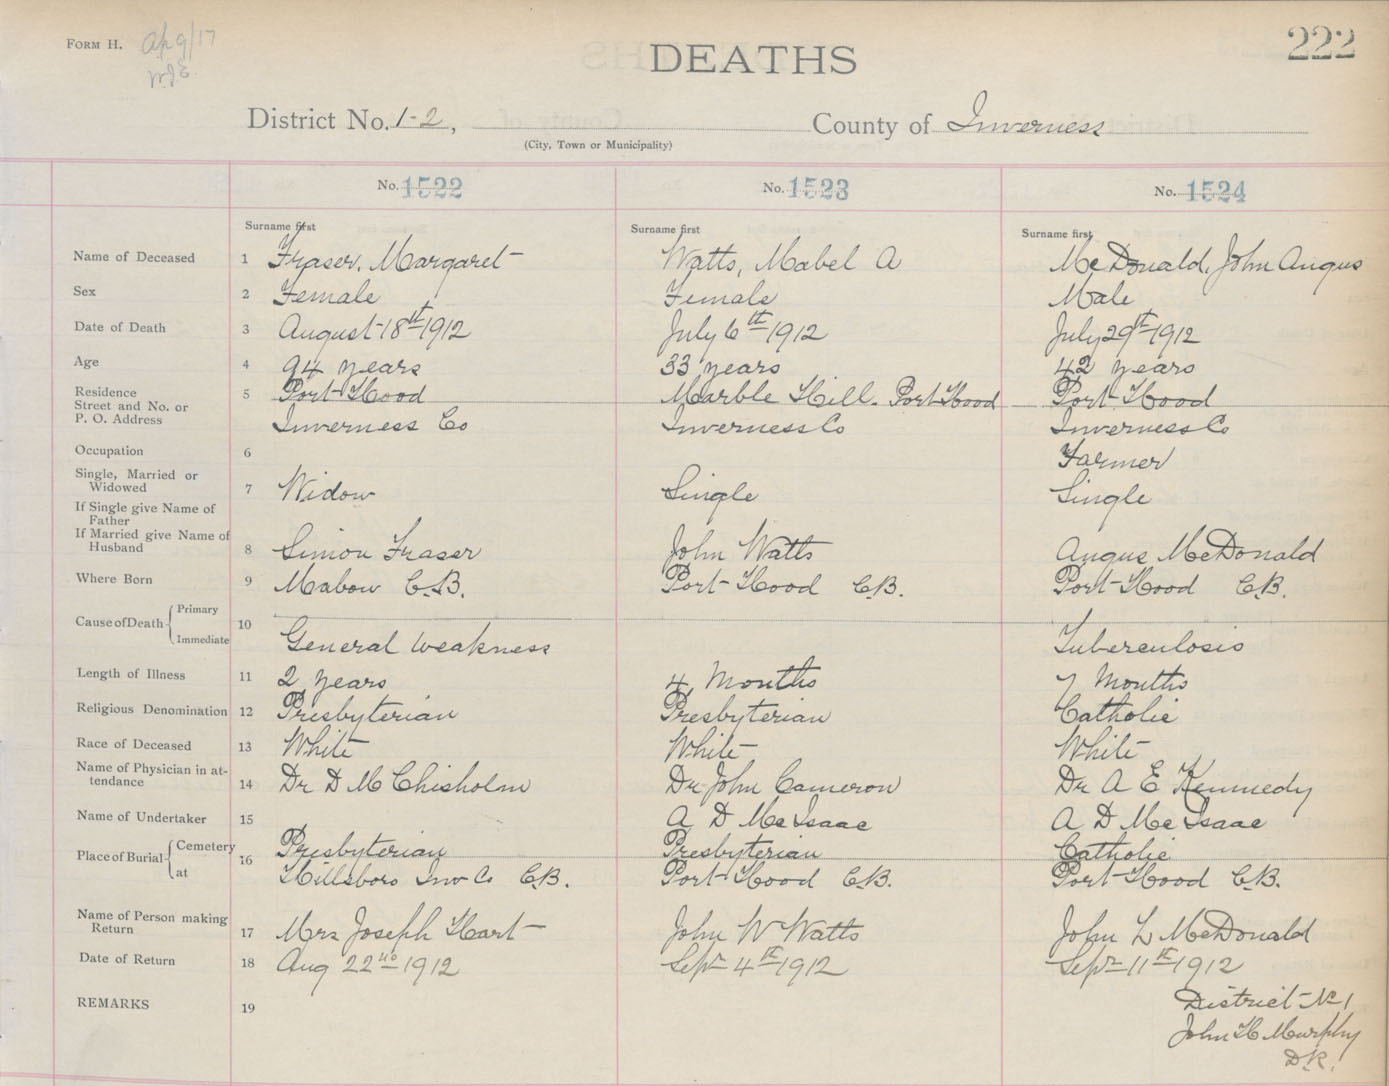 FORM H. Ap 9/17
W.J.E.
DEATHS
222
District No. 1-2, County of Inverness
(City, Town or Municipality)
No. 1522 No. 1523 No. 1524
Surname first Surname first Surname first
Name of Deceased 1 Fraser, Margaret Watts, Mabel A McDonald, John Angus
Sex 2 Female Female Male
Date of Death 3 August 18th 1912 July 6th 1912 July 29th 1912
Age 4 94 years 33 years 42 years
Residence
Street and No. or
P. O. Address
5 Port Hood Marble Hill. Port Hood Port Hood
Inverness Co Inverness Co Inverness Co
Occupation 6 Farmer
Single, Married or
Widowed 7 Widow Single Single
If Single give Name of
Father
If Married give Name of
Husband 8 Simon Fraser John Watts Angus McDonald
Where Born 9 Mabow C.B. Port Hood C.B. Port Hood C.B.
Cause of Death Primary
Immediate
10 General weakness Tuberculosis
Length of Illness 11 2 years 4 Months 7 Months
Religious Denomination 12 Presbyterian Presbyterian Catholic
Race of Deceased 13 White White White
Name of Physician in at-
tendance 14 Dr D M Chisholm Dr John Cameron Dr A E Kennedy
Name of Undertaker 15 A D McIsaac A D McIsaac
Place of Burial Cemetery
at
16 Presbyterian Presbyterian Catholic
Hillsboro Inv Co C.B. Port Hood C.B. Port Hood C.B.
Name of Person making
Return 17 Mrs Joseph Hart John W Watts John L McDonald
Date of Return 18 Aug 22nd 1912 Sepr 4th 1912 Sepr 11th 1912
REMARKS 19
District No 1
John H Murphy
D.R.